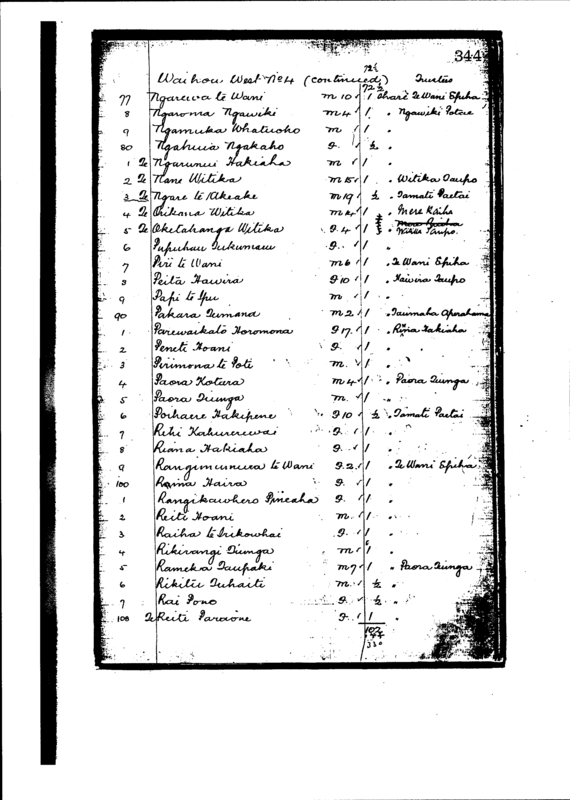 344
72½
Waihou West No 4 (continued) Trustees
72½
77 Ngarewa te Wani m 10 1 share Te Wani Epiha
8 Ngaroma Ngawiki m 4 1 " Ngawiki Potae
9 Ngamuka Whatuoho m 1 "
80 Ngahuia Ngakaho f. ½ "
1 Te Ngarunui Hakiaha m 1
2 Te Nane Witika m 15 1 " Witika Taupo
3 Te Ngare te Akeake m 19 ½ " Tamati Paetai
4 Te Orikana Witika m 14 1 Mere Kaiha
5 Te Oketahanga Witika f. 4 1 Taupo.
6 Pupuhau Tukumau f. 1 "
7 Piri te Wani m 6 1 " Te Wani Epiha
8 Peita Hawira f 10 1 " Hawira Taupo
9 Papi te Ipu m 1 "
90 Pakara Tumana m 2 1 " Taumaha Aperahama
1 Parewaikato Horomona f 17 1 " Riria Hakiaha
2 Peneti Hoani f. 1 "
3 Pirimona te Poti m. 1 "
4 Paora Kotura m 4 1 " Paora Tiunga
5 Paora Tiunga m. 1 "
6 Poihaere Hakipene f 10 ½ " Tamati Paetai
7 Rihi Kahurerewai f. 1 "
8 Riana Hakiaha f. 1 "
9 Rangimunura te Wani f. 2 1 " Te Wani Epiha
100 Raima Haira f. 1 "
1 Rangikawhero Pineaha f. 1 "
2 Reiti Hoani m. 1 "
3 Raiha te Irikowhai f. 1 "
4 Rikirangi Tiunga m 1 "
5 Rameka Taupaki m 7 1 " Paora Tiunga
6 Rikitu Tuhaiti m. ½ "
7 Rai Pono f. ½ "
108 Te Reiti Paraone f. 1 "
102